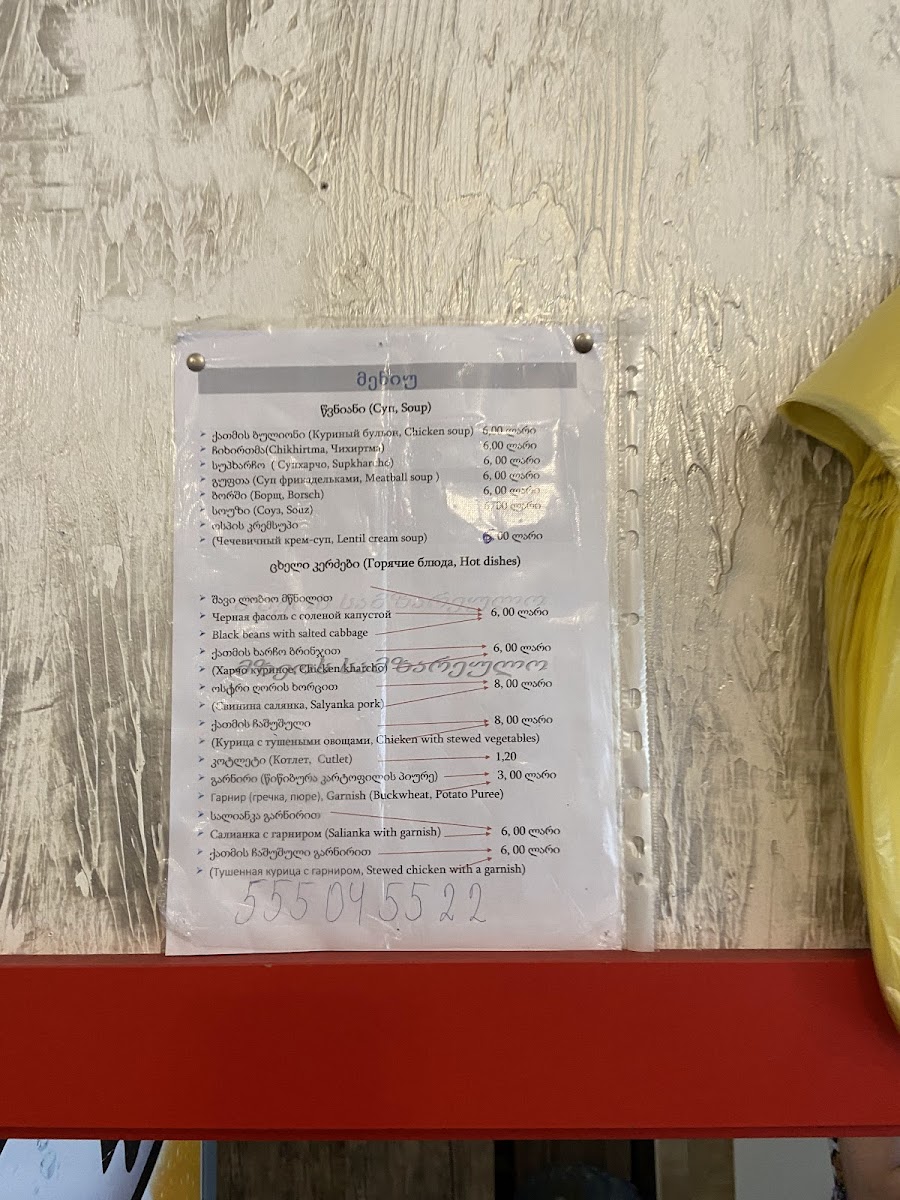 მენიუ
წვნიანი (Суп, Soup)
➢ ქათმის ბულიონი (Куриный бульон, Chicken soup) 6,00 ლარი
➢ ჩიხირთმა(Chikhirtma, Чихиртма) 6,00 ლარი
➢ სუპხარჩო ( Супхарчо, Supkharcho) 6, 00 ლარი
➢ გუფთა (Суп фрикадельками, Meatball soup ) 6, 00 ლარი
➢ ბორში (Борщ, Borsch) 6, 00 ლარი
➢ სოუზი (Соуз, Souz) 6, 00 ლარი
➢ ოსპის კრემსუპი
➢ (Чечевичный крем-суп, Lentil cream soup) 6, 00 ლარი
ცხელი კერძები (Горячие блюда, Hot dishes)
➢ შავი ლობიო მწნილით
➢ Черная фасоль с соленой капустой 6, 00 ლარი
➢ Black beans with salted cabbage
➢ ქათმის ხარჩო ბრინჯით 6, 00 ლარი
➢ (Харчо куриное, Chicken kharcho)
➢ ოსტრი ღორის ხორცით 8, 00 ლარი
➢ (Свинина салянка, Salyanka pork)
➢ ქათმის ჩაშუშული 8, 00 ლარი
➢ (Курица с тушеными овощами, Chicken with stewed vegetables)
➢ კოტლეტი (Котлет, Cutlet) 1,20
➢ გარნირი (წიწიბურა კარტოფილის პიურე) 3, 00 ლარი
➢ Гарнир (гречка, пюре), Garnish (Buckwheat, Potato Puree)
➢ სალიანკა გარნირით
➢ Салианка с гарниром (Salianka with garnish) 6, 00 ლარი
➢ ქათმის ჩაშუშული გარნირით 6, 00 ლარი
➢ (Тушенная курица с гарниром, Stewed chicken with a garnish)
555 04 55 22